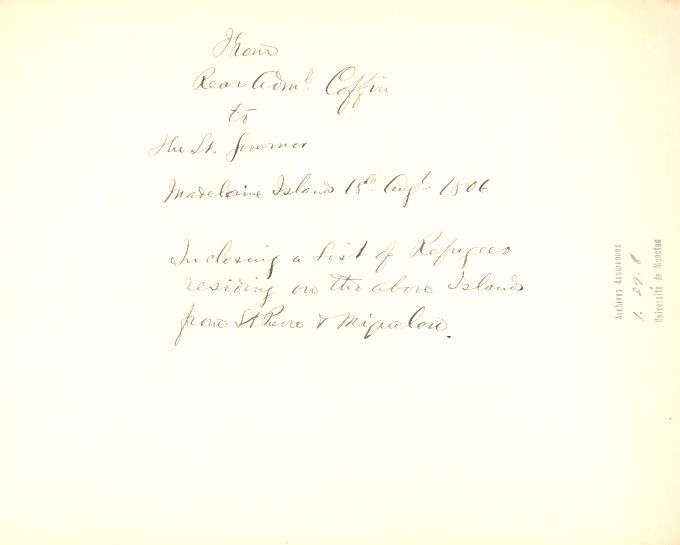 From
Rear Adml. Coffin
to
The Lt. Governor
Madelaine Island 18th Augt 1806
Inclosing a List of Refugees
residing on the above Island
from St Pierre & Miquelon.
Archives Acadiennes
1. 37-8
Université de Moncton